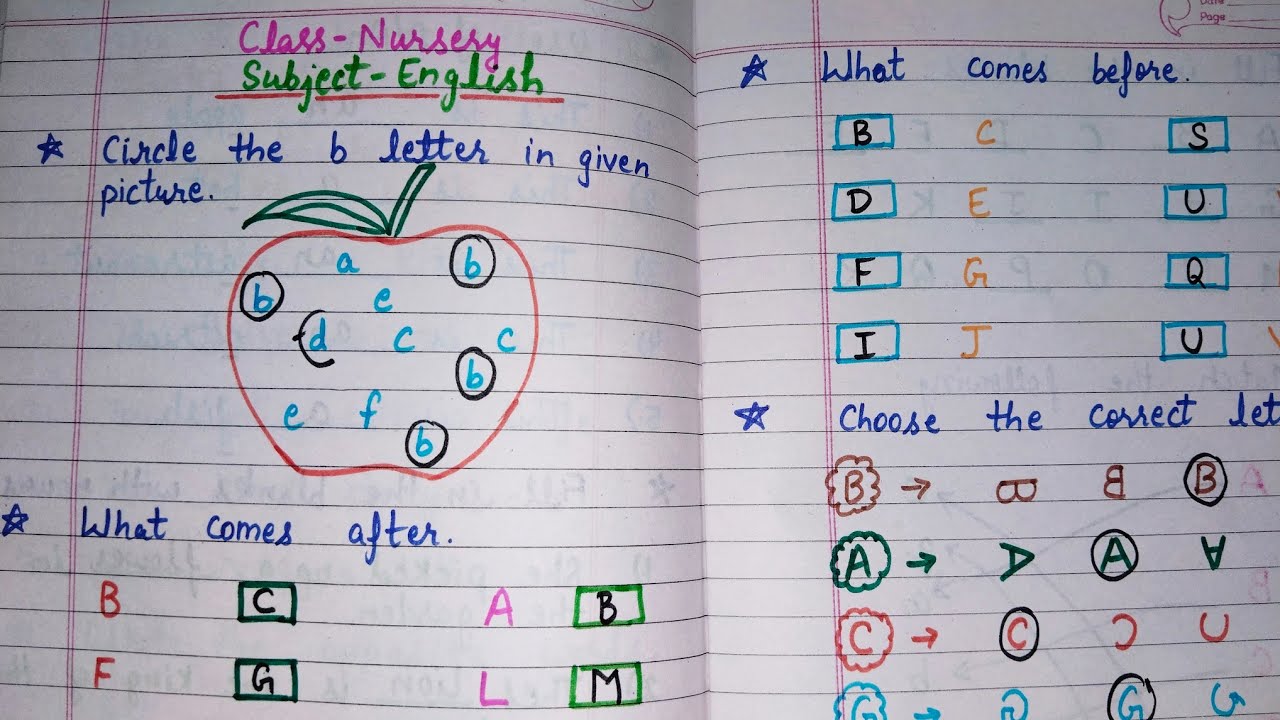 Class-Nursery
Subject-English
☆ Circle the b letter in given
picture.
a b
b e
d c c
b
e f
b
☆ What comes after.
B C A B
F G L M
Date
Page
☆ What comes before.
B C S
D E U
F G Q
I J U
☆ Choose the correct let
B → B B B
A → A A A
C → C C C
G → G G G